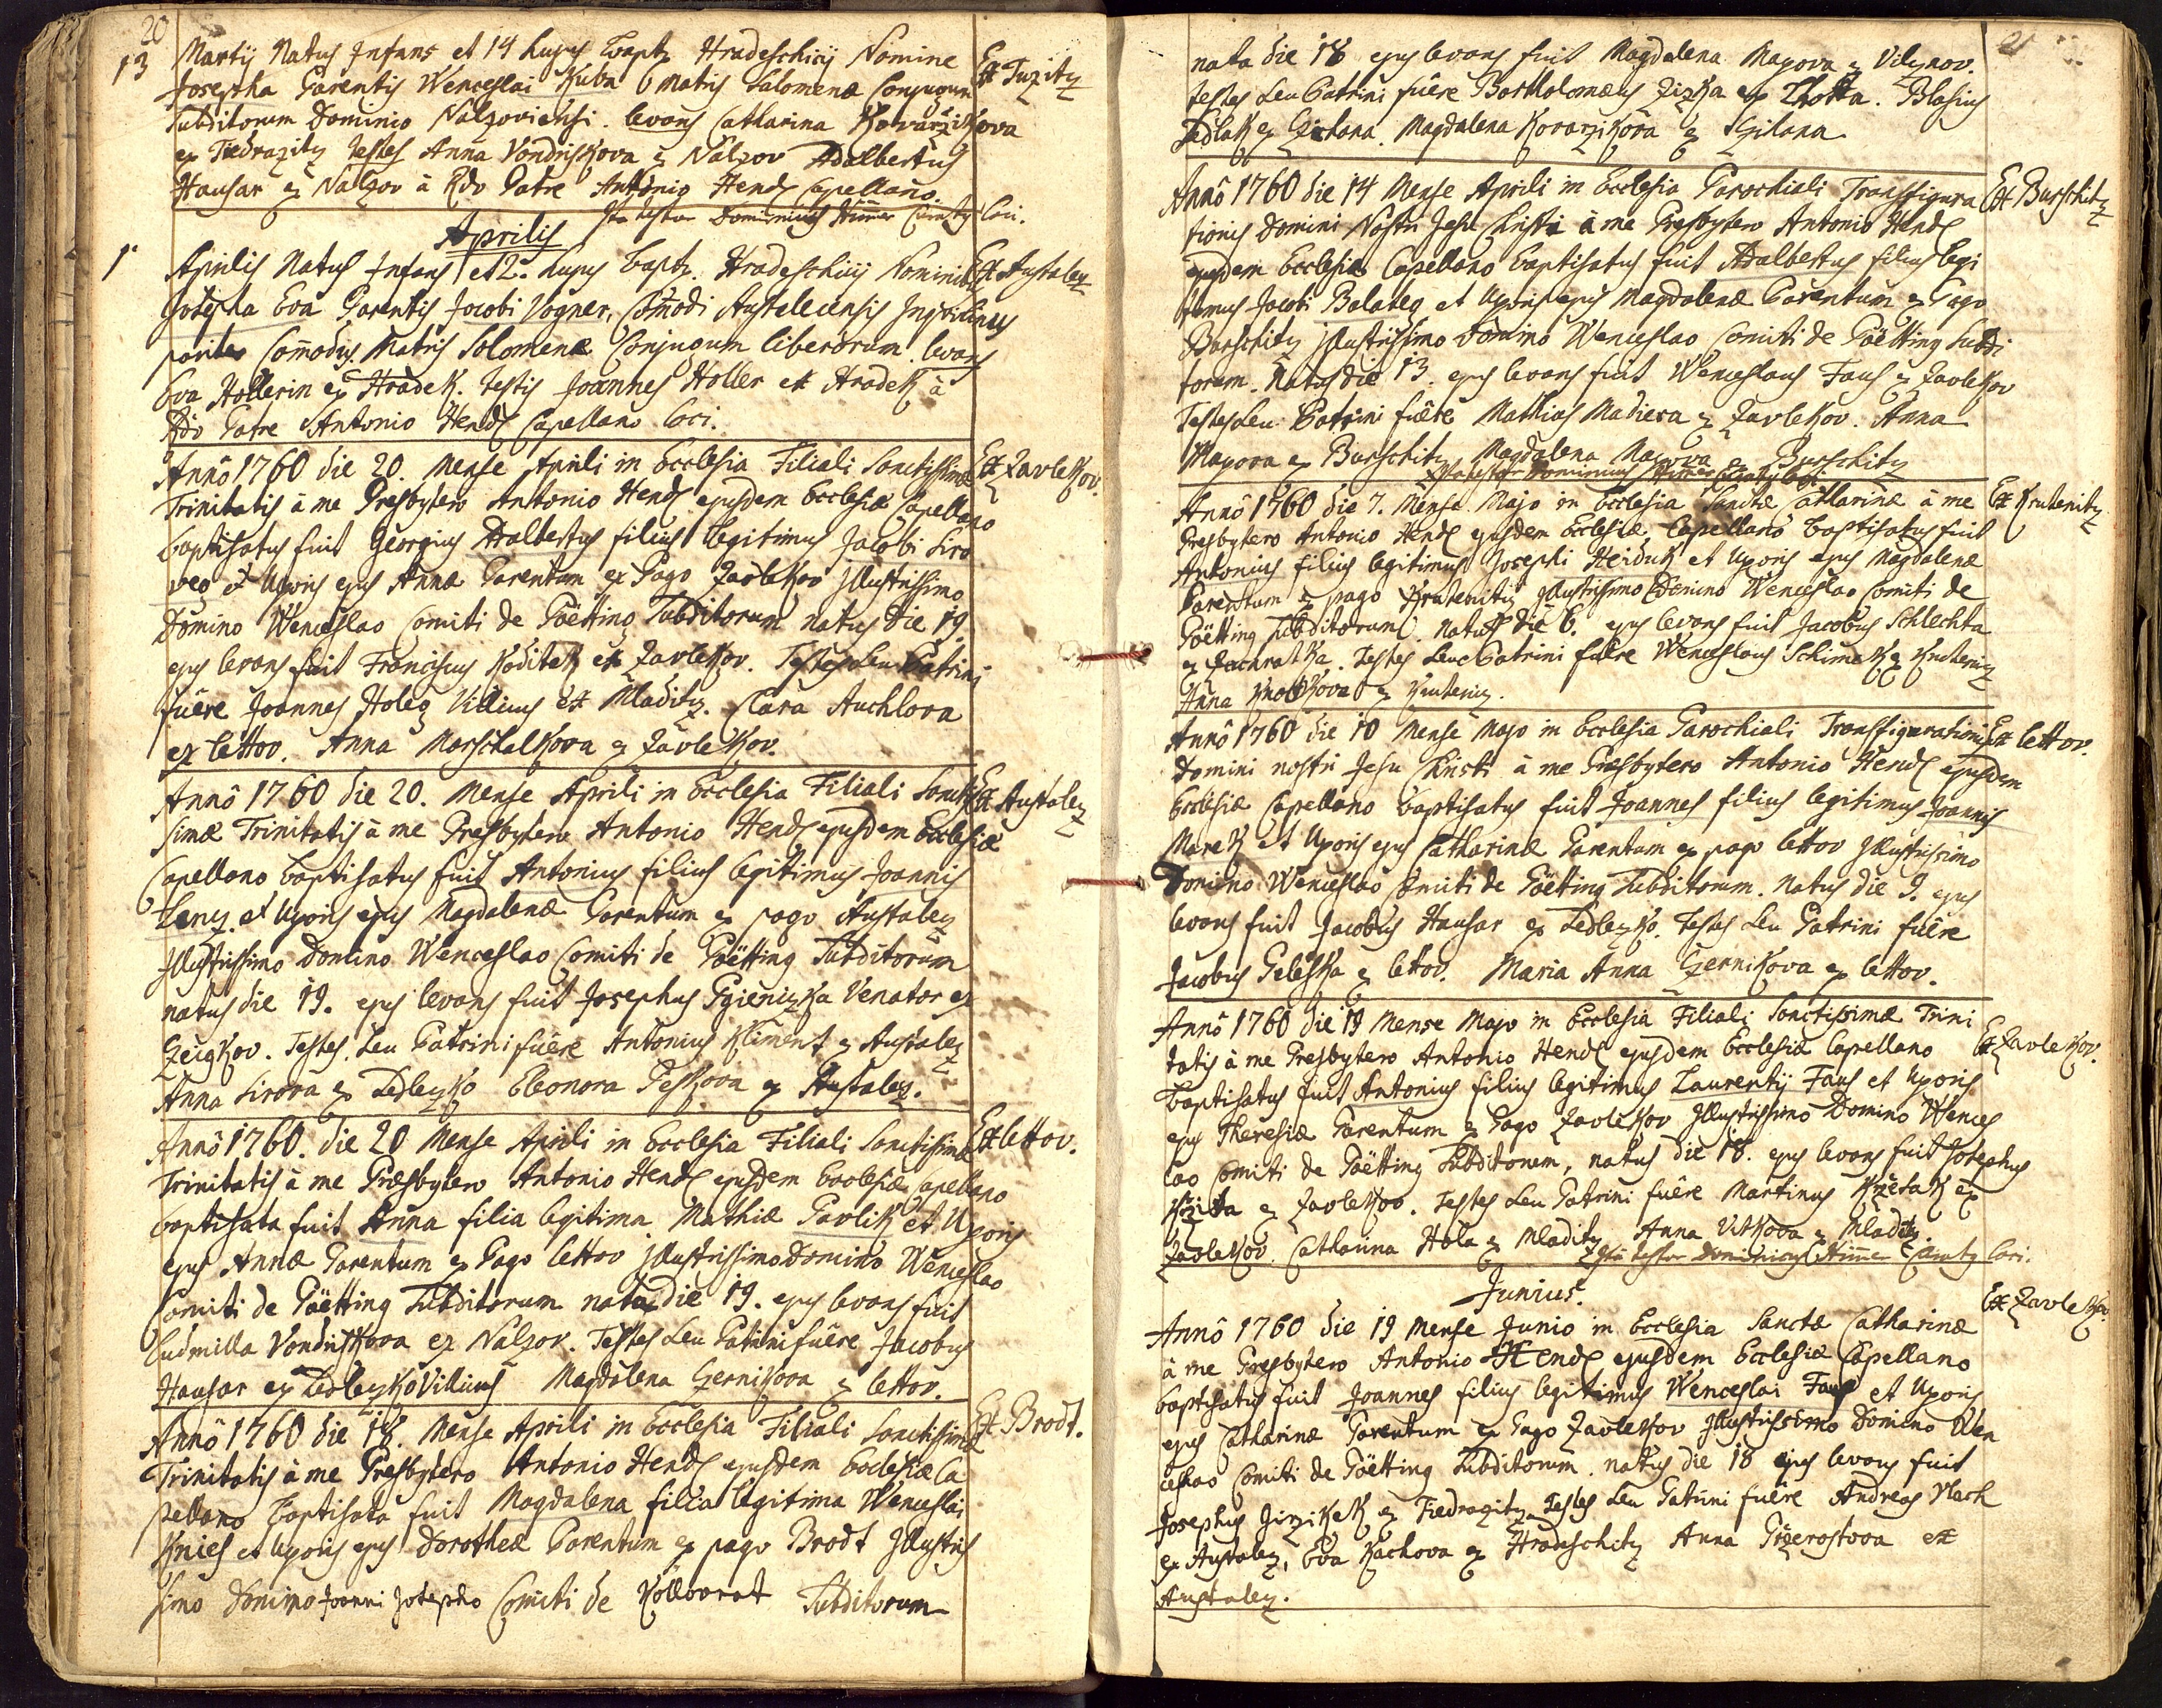 20
13 Martij Natus Infans et 14 hujus bapt. Hradeschicij Nomine Ex Tuzitz
Josepha Parentis Wenceslai Kuba Matris Salomenæ Conjugum
Subditorum Dominio Nalzoviensi. levans Catharina Kovarzikova
ex Tiedrazitz Testes Anna Vondrskova ex Nalzov Adalbertus
Hausar ex Nalzov à Rdo Patre Antonio Hendl Capellano.
Ita testor Dominicus Curatus loci.
Aprilis
1. Aprilis Natus Infans et 2. hujus bapt. Hradeschicij Ex Austalez
Josepha Eva Parentis Jacobi Vogner, Com̄odi Austelecensis
pariter Com̄odus Matris Solomenæ Conjugum liberorum. levans
Eva Hollerin ex Hradek. Testis Joannes Holler ex Hradek à
Rdo Patre Antonio Hendl Capellano loci.
Annô 1760 die 20. Mense Aprili in Ecclesia Filiali Sanctissimæ Ex Zavlekov.
Trinitatis à me Presbytero Antonio Hendl ejusdem Ecclesiæ Capellano
baptisatus fuit Georgius Adalbertus filius legitimus Jacobi Siro
veg et Uxoris ejus Annæ Parentum ex Pago Zavlekov Illustrissimo
Domino Wenceslao Comiti de Göetting Subditorum natus die 19.
ejus levans fuit Franciscus Koditek ex Zavlekov. Testes seu Patrini
fuêre Joannes Holeg Villicus ex Mladitz. Clara Auchlova
ex lettov. Anna Marschalkova ex Zavlekov.
Annô 1760 die 20. Mense Aprili in Ecclesia Filiali Sanctis Ex Austalez
simæ Trinitatis à me Presbytero Antonio Hendl ejusdem Ecclesiæ
Capellano baptisatus fuit Antonius filius legitimus Joannis
Lenz. et Uxoris ejus Magdalenæ Parentum ex pago Austalez
Illustrissimo Domino Wenceslao Comiti de Göetting Subditorum
natus die 19. ejus levans fuit Josephus Pgieniczka Venator ex
Czeigkov. Testes Seu Patrini fuêre Antonius Kliment ex Austalez
Anna Sirova ex Sedleczko Eleonora Peskova ex Austalez.
Annô 1760. die 20 Mense Aprili in Ecclesia Filiali Sanctissimæ Ex lettov.
Trinitatis à me Præsbytero Antonio Hendl ejusdem Ecclesiæ Capellano
baptisata fuit Anna filia legitima Mathiæ Pavlik et Uxoris
ejus Annæ Parentum ex Pago lettov Illustrissimo Domino Wenceslao
Comiti de Göetting Subditorum nata die 19. ejus levans fuit
Ludmilla Vondrskova ex Nalzov. Testes Seu Patrini fuêre Jacobus
Hausar ex Sedleczko Villicus Magdalena Czernikova ex lettov.
Annô 1760 die 18. Mense Aprili in Ecclesia Filiali Sanctissimæ Ex Brodt.
Trinitatis à me Presbytero Antonio Hendl ejusdem Ecclesiæ Ca
pellano baptisata fuit Magdalena filia legitima Wenceslai
Knies et Uxoris ejus Dorotheæ Parentum ex pago Brodt Illustris
simo Domino Joanni Josepho Comiti de Kollovrat Subditorum
21
nata die 18 ejus levans fuit Magdalena Mayova ex Vileznov.
testes Seu Patrini fuêre Bartholomæus Zizka ex Lhotta. Blasius
Sedlak ex Gitana. Magdalena Kovarzikova ex Gitana
Annô 1760 die 14 Mense Aprili in Ecclesia Parochiali Transfigura Ex Burschitz
tionis Domini Nostri Jesu Christi à me Presbytero Antonio Hendl
ejusdem Ecclesiæ Capellano baptisatus fuit Adalbertus filius legi
timus Jacobi Balateg et Uxoris ejus Magdalenæ Parentum ex Pago
Burschitz Illustrissimo Domino Wenceslao Comiti de Göetting Subdi
torum. Natus die 13. ejus levans fuit Wenceslaus Faus ex Zavlekov
Testes Seu Patrini fuêre Mathias Madiera ex Zavlekov. Anna
Mayova ex Burschitz Magdalena Mayova ex Burschitz
Ita testor Dominicus Curatus loci.
Annô 1760 die 7. Mense Majo in Ecclesia Sanctæ Catharinæ à me Ex Krutenitz
Presbytero Antonio Hendl ejusdem Ecclesiæ Capellano baptisatus fuit
Antonius filius legitimus Josephi Heiduk et Uxoris ejus Magdalenæ
Parentum ex pago Krutenitz Illustrissimo Domino Wenceslao Comiti de
Göetting Subditorum. Natus die 6. ejus levans fuit Jacobus Schlechta
ex Zachratka. Testes Seu Patrini fuêre Wenceslaus Schimek ex Krutenicz
Anna ex Krutenicz.
Annô 1760 die 10 Mense Majo in Ecclesia Parochiali Transfigurationis Ex lettov.
Domini nostri Jesu Christi à me Præsbytero Antonio Hendl ejusdem
Ecclesiæ Capellano baptisatus fuit Joannes filius legitimus Joannis
Marek et Uxoris ejus Catharinæ Parentum ex pago lettov Illustrissimo
Domino Wenceslao Comiti de Göetting Subditorum. Natus die 9. ejus
levans fuit Jacobus Hausar ex Sedleczko. Testes Seu Patrini fuêre
Jacobus Peleska ex lettov. Maria Anna Czernikova ex lettov.
Annô 1760 die 19 Mense Majo in Ecclesia Filiali Sanctissimæ Trini
tatis à me Presbytero Antonio Hendl ejusdem Ecclesiæ Capellano Ex Zavlekov.
baptisatus fuit Antonius filius legitimus Laurentij Faus et Uxoris
ejus Theresiæ Parentum ex Pago Zavlekov Illustrissimo Domino Wences
lao Comiti de Göetting Subditorum, natus die 18. ejus levans fuit Josephus
ex Zavlekov. Testes Seu Patrini fuêre Martinus ex
Zavlekov. Catharina Hola ex Mladitz Anna Vitkova ex Mladitz.
Ita testor Dominicus Curatus loci.
Junius.
Annô 1760 die 19 Mense Junio in Ecclesia Sanctæ Catharinæ Ex Zavlekov
à me Presbytero Antonio Hendl ejusdem Ecclesiæ Capellano
baptisatus fuit Joannes filius legitimus Wenceslai Faus et Uxoris
ejus Catharinæ Parentum ex Pago Zavlekov Illustrissimo Domino Wen
ceslao Comiti de Göetting Subditorum. natus die 18 ejus levans fuit
Josephus Jirzikek ex Tiedrazitz Testes Seu Patrini fuêre Andreas Vlach
ex Austalez, Eva Kachova ex Hradeschitz Anna Przerostova ex
Austalez.